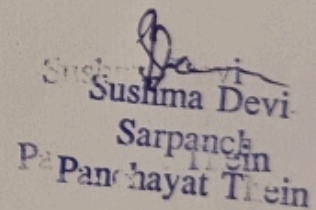 Sushma Devi
Sarpanch
Panchayat Thein